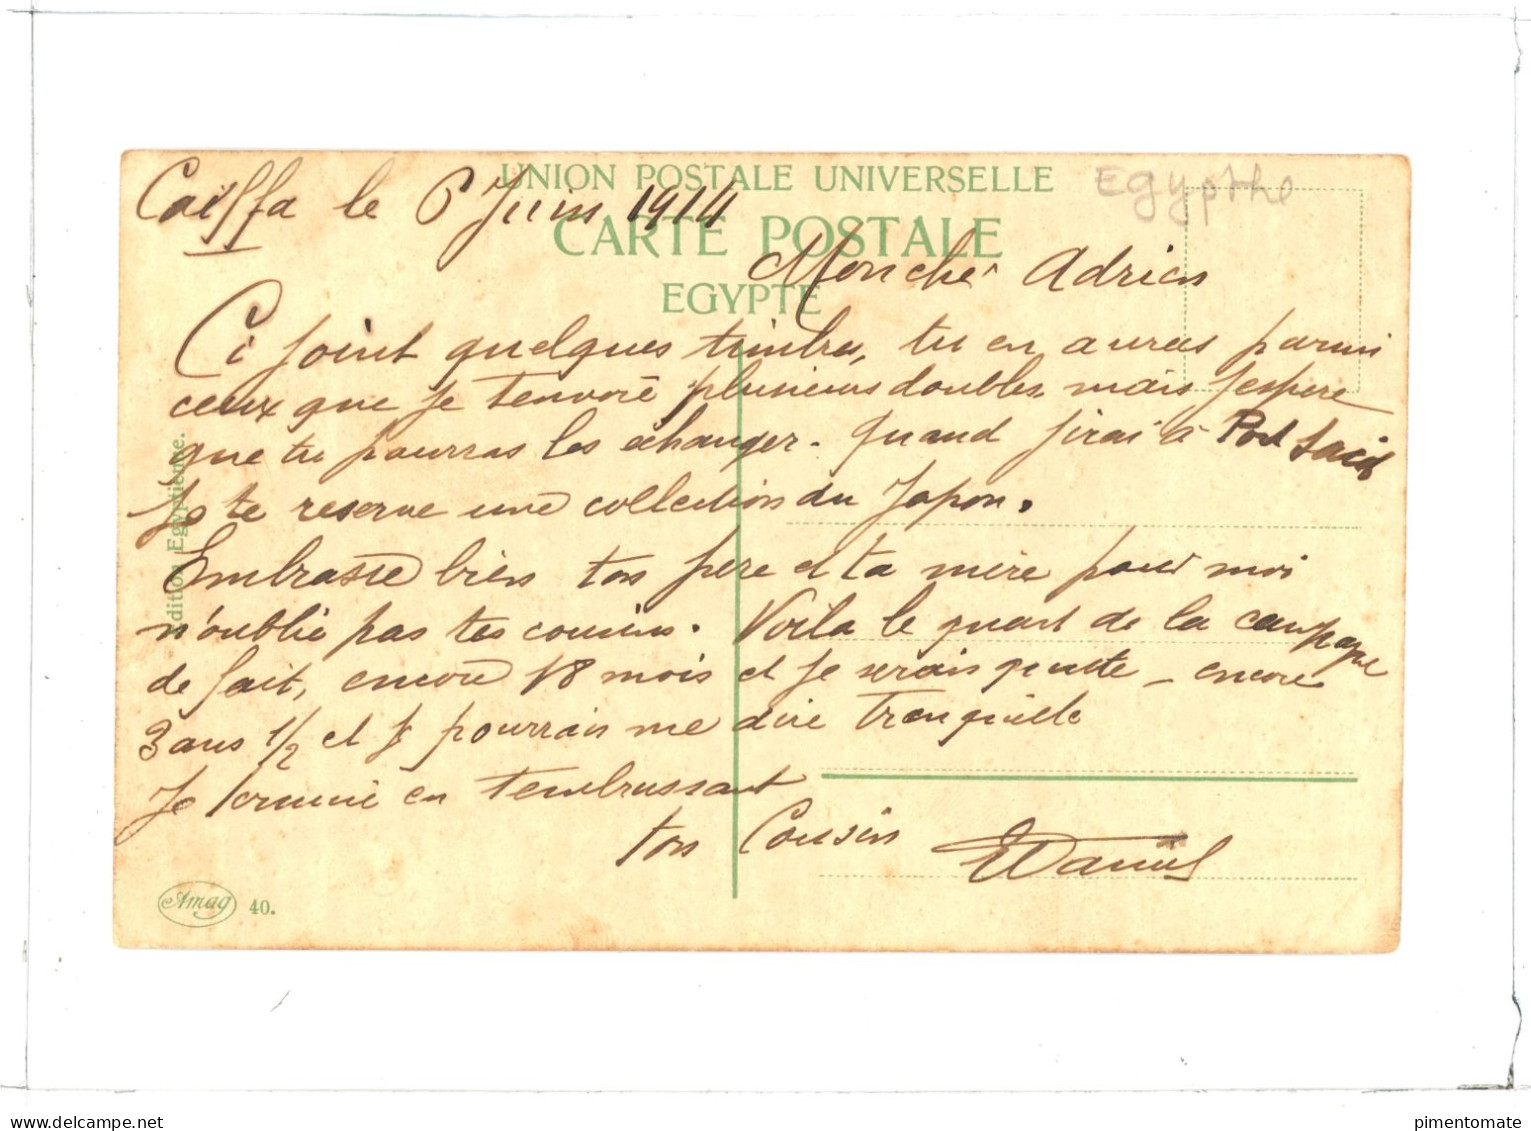 UNION POSTALE UNIVERSELLE
Egypthe
Caïffa le 6 Juin 1914
CARTE POSTALE
Monche Adrien
EGYPTE
Ci joint quelques timbres, tu en auras parmi
ceux que je tenvoie plusieurs doubles mais jespere
que tu pourras les échanger. quand jirai à Port Said
Je te reserve une collection du Japon.
Embrasse bien ton pere et ta mère pour moi
n'oublie pas tes cousins. Voila le quart de la campagne
de fait, encore 18 mois et je serais quitte _ encore
3 ans 1/2 et je pourrais me dire tranquille
Je termine en tembrassant
ton Cousin
Edition Egyptienne.
Amag 40.
pimentomate
www.delcampe.net